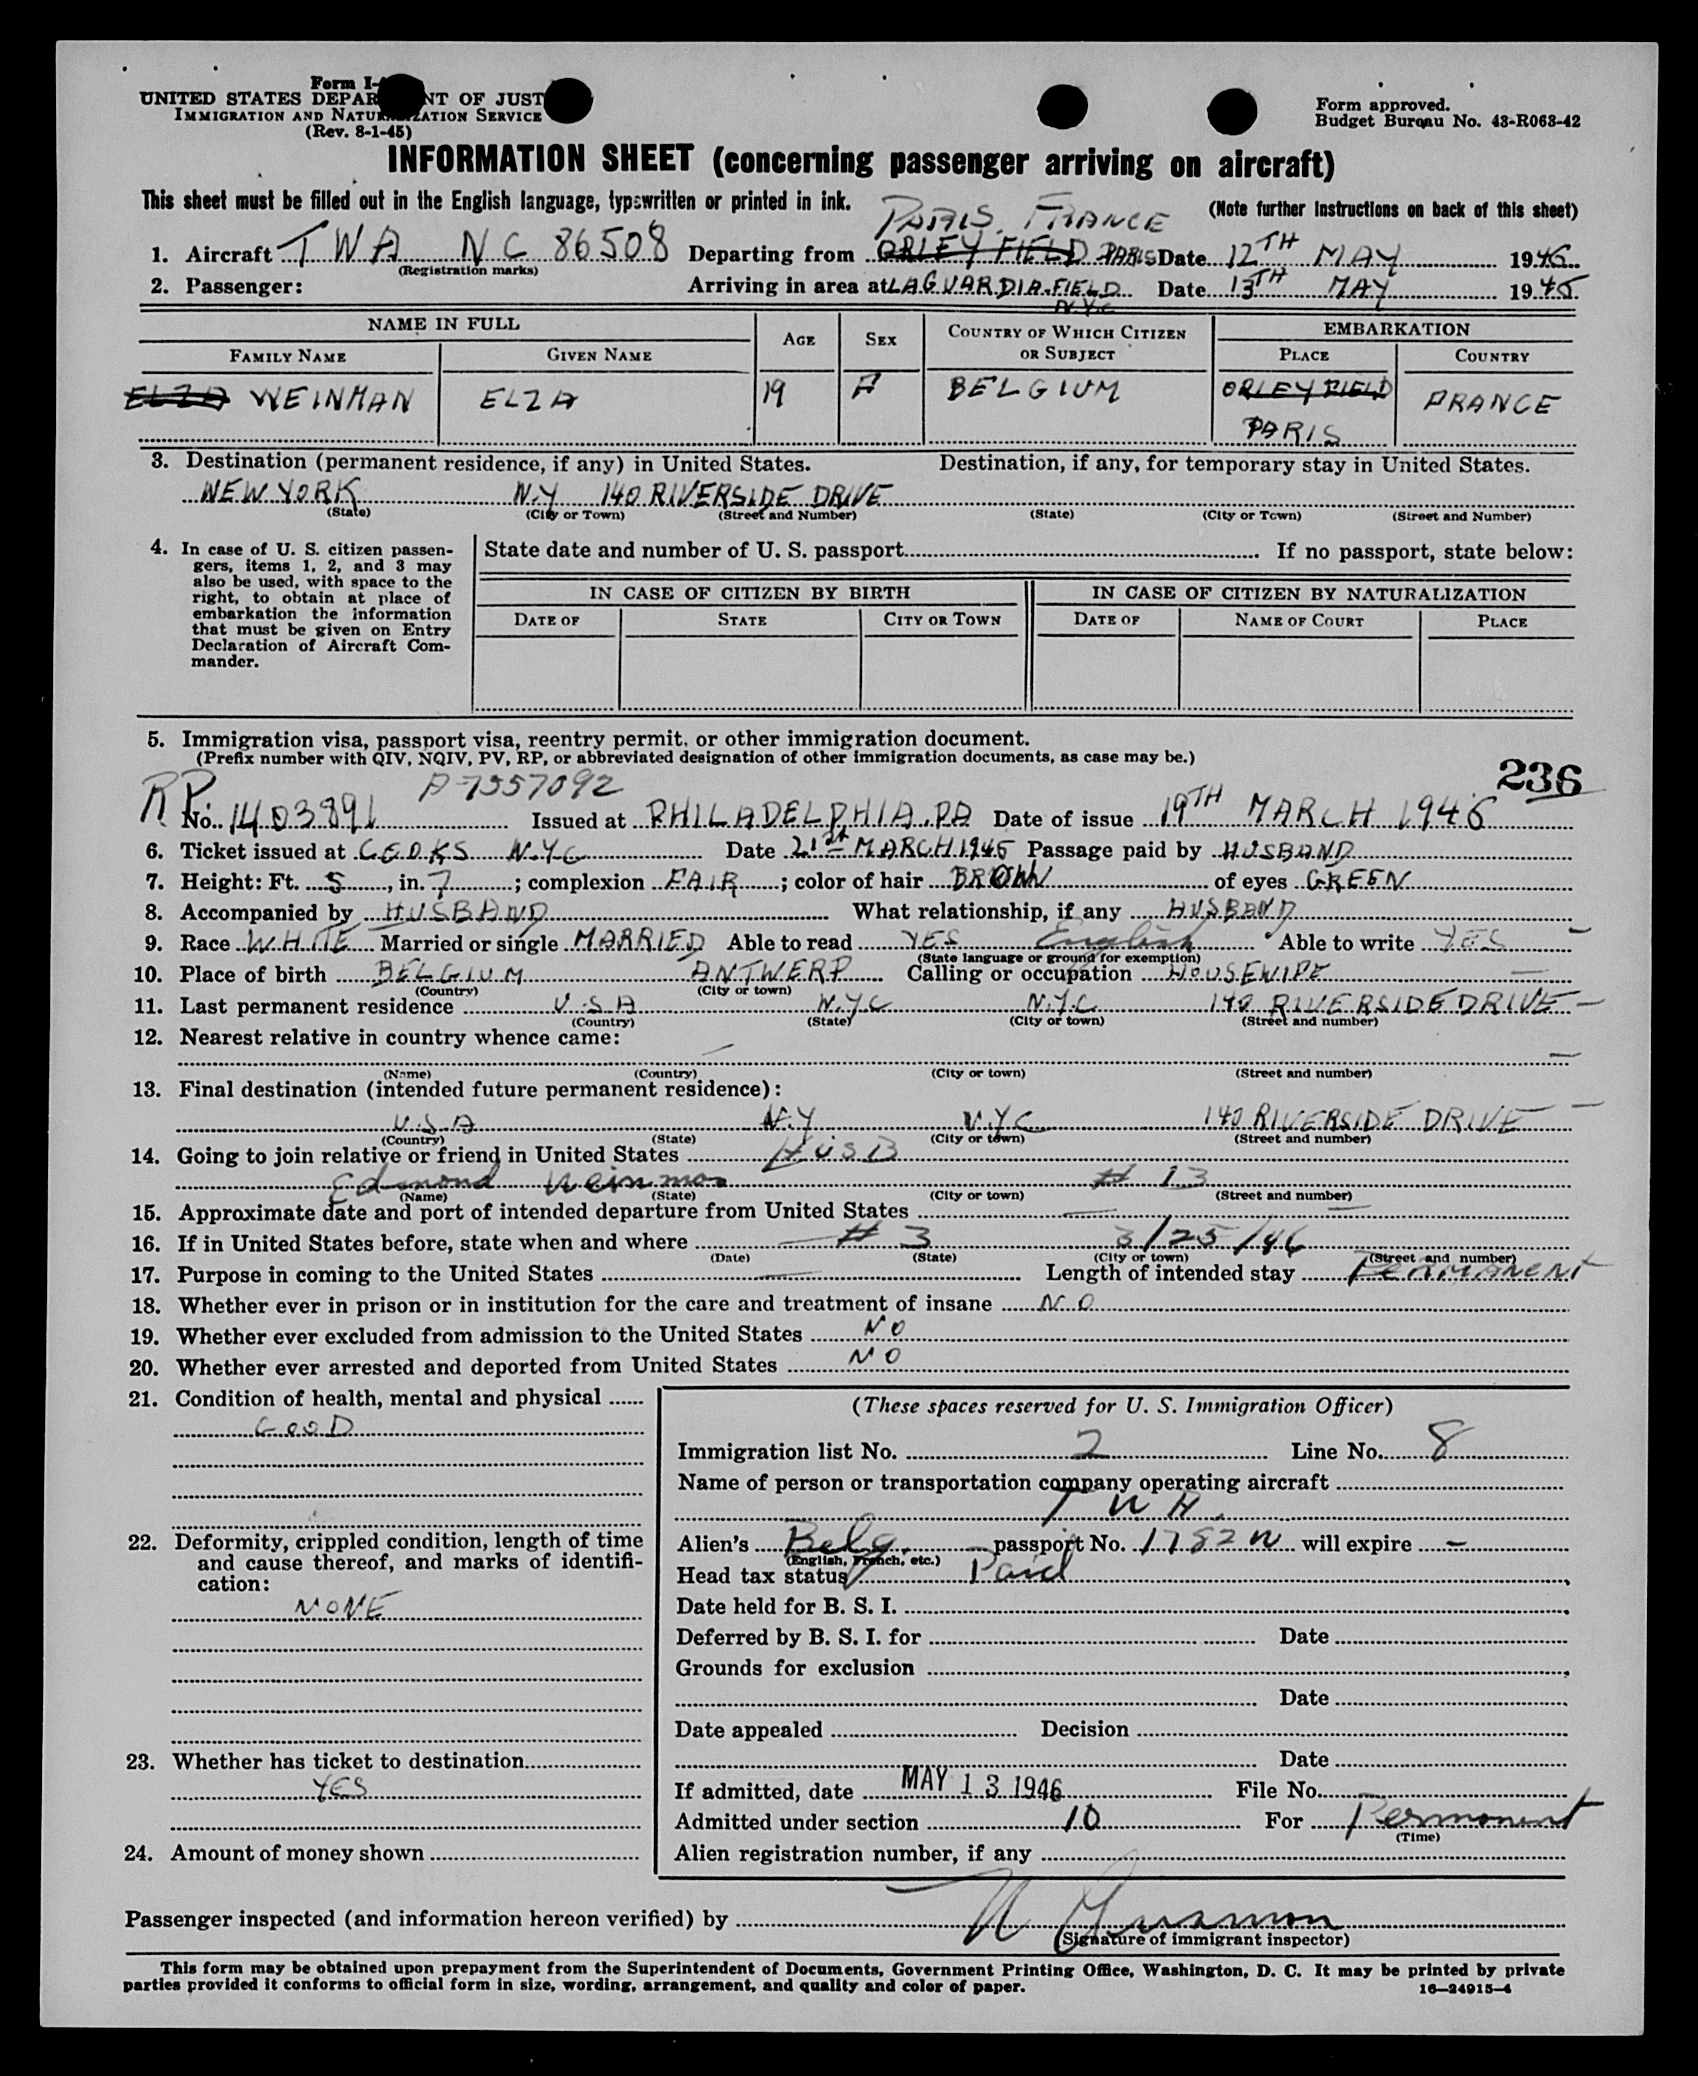 Form I-
UNITED STATES DEPAR NT OF JUST
IMMIGRATION AND NATU ZATION SERVICE
(Rev. 8-1-45)
Form approved.
Budget Bureau No. 43-R063-42
INFORMATION SHEET (concerning passenger arriving on aircraft)
This sheet must be filled out in the English language, typewritten or printed in ink.
(Note further instructions on back of this sheet)
PARIS. FRANCE
1. Aircraft TWA NC 86508 Departing from ORLEY FIELD PARIS Date 12TH MAY 1946
(Registration marks)
2. Passenger: Arriving in area at LAGUARDIA FIELD Date 13TH MAY 1946
N.Y.C
NAME IN FULL AGE SEX COUNTRY OF WHICH CITIZEN OR SUBJECT EMBARKATION
FAMILY NAME GIVEN NAME PLACE COUNTRY
ELZA WEINMAN ELZA 19 F BELGIUM ORLEY FIELD FRANCE
PARIS
3. Destination (permanent residence, if any) in United States. Destination, if any, for temporary stay in United States.
NEW YORK N.Y 140 RIVERSIDE DRIVE
(State) (City or Town) (Street and Number) (State) (City or Town) (Street and Number)
4. In case of U. S. citizen passen-
gers, items 1, 2, and 3 may
also be used, with space to the
right, to obtain at place of
embarkation the information
that must be given on Entry
Declaration of Aircraft Com-
mander.
State date and number of U. S. passport If no passport, state below:
IN CASE OF CITIZEN BY BIRTH IN CASE OF CITIZEN BY NATURALIZATION
DATE OF STATE CITY OR TOWN DATE OF NAME OF COURT PLACE
5. Immigration visa, passport visa, reentry permit, or other immigration document.
(Prefix number with QIV, NQIV, PV, RP, or abbreviated designation of other immigration documents, as case may be.)
236
A-7557092
RP. No. 1403891 Issued at PHILADELPHIA, PA Date of issue 19TH MARCH 1946
6. Ticket issued at COOKS N.Y.C Date 21st MARCH 1946 Passage paid by HUSBAND
7. Height: Ft. 5, in. 7; complexion FAIR; color of hair BROWN of eyes GREEN
8. Accompanied by HUSBAND What relationship, if any HUSBAND
9. Race WHITE Married or single MARRIED Able to read YES English Able to write YES
(State language or ground for exemption)
10. Place of birth BELGIUM ANTWERP Calling or occupation HOUSEWIFE
(Country) (City or town)
11. Last permanent residence U.S.A N.Y.C N.Y.C 140 RIVERSIDE DRIVE
(Country) (State) (City or town) (Street and number)
12. Nearest relative in country whence came:
(Name) (Country) (City or town) (Street and number)
13. Final destination (intended future permanent residence):
U.S.A N.Y N.Y.C 140 RIVERSIDE DRIVE
(Country) (State) (City or town) (Street and number)
14. Going to join relative or friend in United States HUSB
Edmond Weinman # 13
(Name) (State) (City or town) (Street and number)
15. Approximate date and port of intended departure from United States
16. If in United States before, state when and where # 3 3/25/46
(Date) (State) (City or town) (Street and number)
17. Purpose in coming to the United States Length of intended stay PERMANENT
18. Whether ever in prison or in institution for the care and treatment of insane NO
19. Whether ever excluded from admission to the United States NO
20. Whether ever arrested and deported from United States NO
21. Condition of health, mental and physical
GOOD
22. Deformity, crippled condition, length of time
and cause thereof, and marks of identifi-
cation:
NONE
23. Whether has ticket to destination
YES
24. Amount of money shown
(These spaces reserved for U. S. Immigration Officer)
Immigration list No. 2 Line No. 8
Name of person or transportation company operating aircraft
TWA.
Alien's Belg. passport No. 1782 W will expire -
(English, French, etc.)
Head tax status Paid
Date held for B. S. I.
Deferred by B. S. I. for Date
Grounds for exclusion
Date
Date appealed Decision
Date
If admitted, date MAY 13 1946 File No.
Admitted under section 10 For Permanent
(Time)
Alien registration number, if any
Passenger inspected (and information hereon verified) by
(Signature of immigrant inspector)
This form may be obtained upon prepayment from the Superintendent of Documents, Government Printing Office, Washington, D. C. It may be printed by private
parties provided it conforms to official form in size, wording, arrangement, and quality and color of paper.
16—24915-4